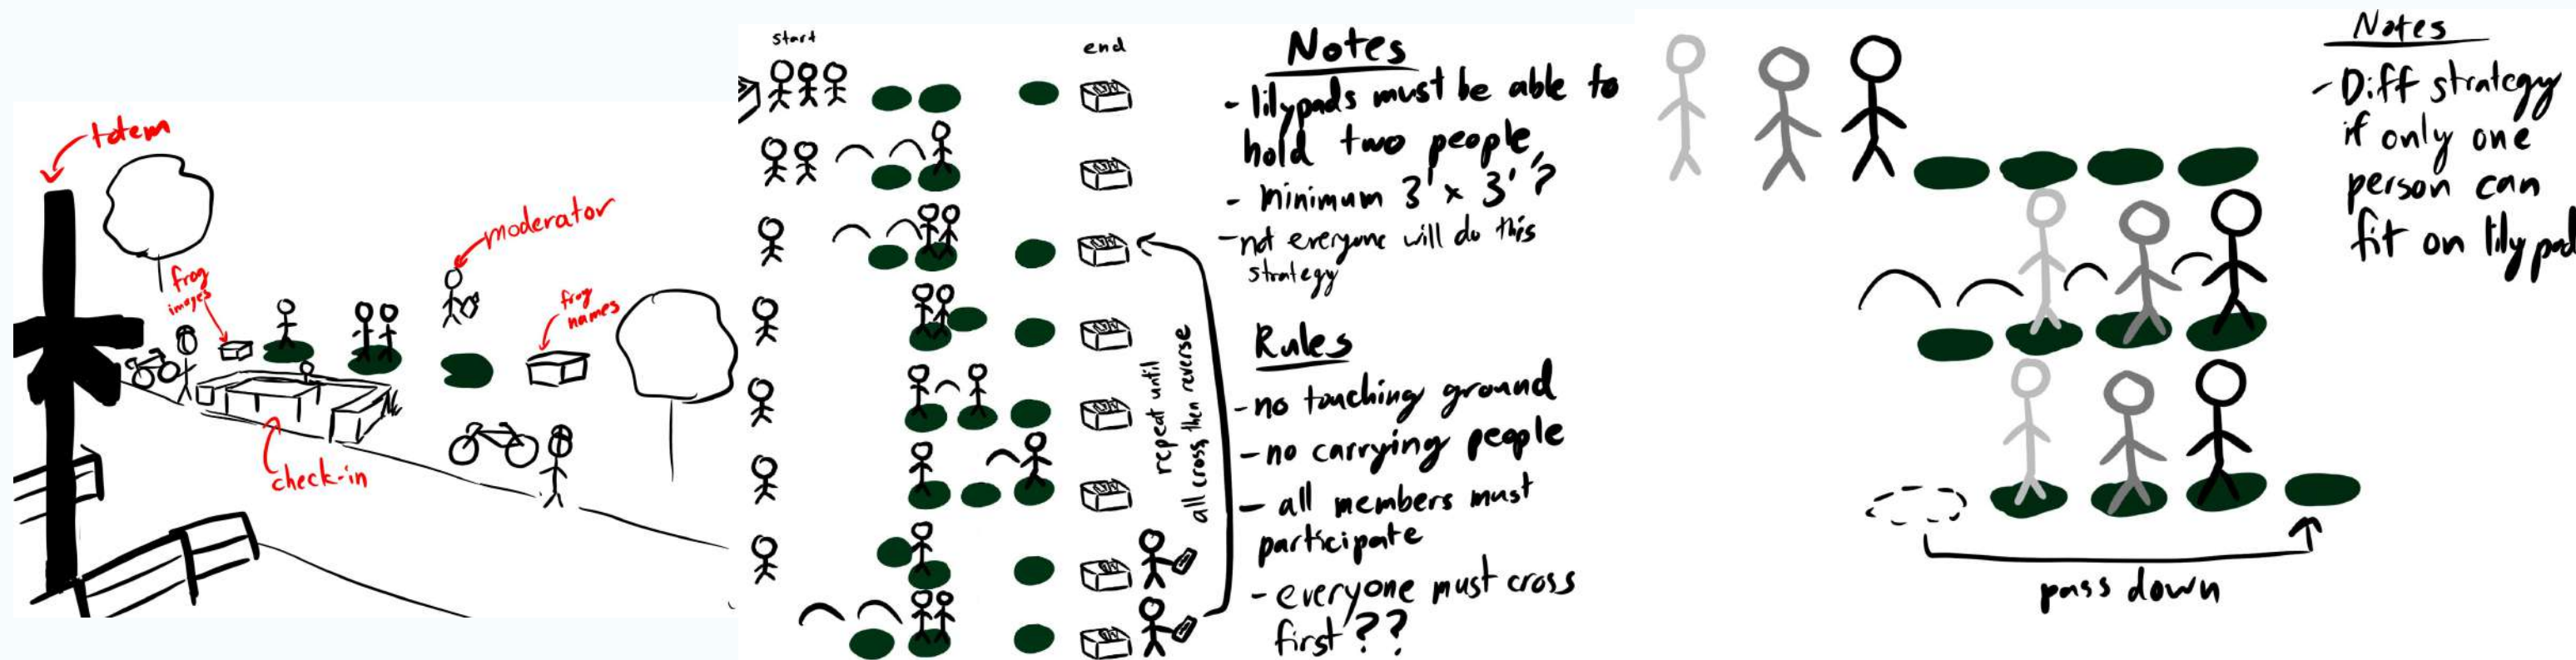 totem
moderator
frog
images
frog
names
check-in
start
end
repeat until
all cross, then reverse
Notes
- lilypads must be able to
hold two people
- minimum 3' x 3'?
- not everyone will do this
strategy
Rules
- no touching ground
- no carrying people
- all members must
participate
- everyone must cross
first??
Notes
- Diff strategy
if only one
person can
fit on lilypad
pass down